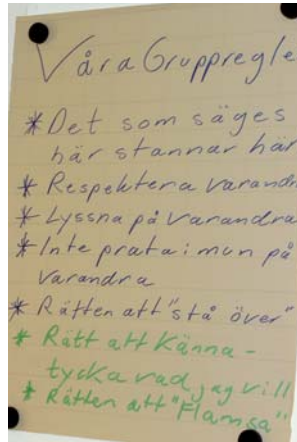 Våra Gruppregle
* Det som säges
här stannar här
* Respektera varandr
* Lyssna på varandra
* Inte prata i mun på
varandra
* Rätten att "stå över"
* Rätt att känna -
tycka vad jag vill
* Rätten att "Flamsa"